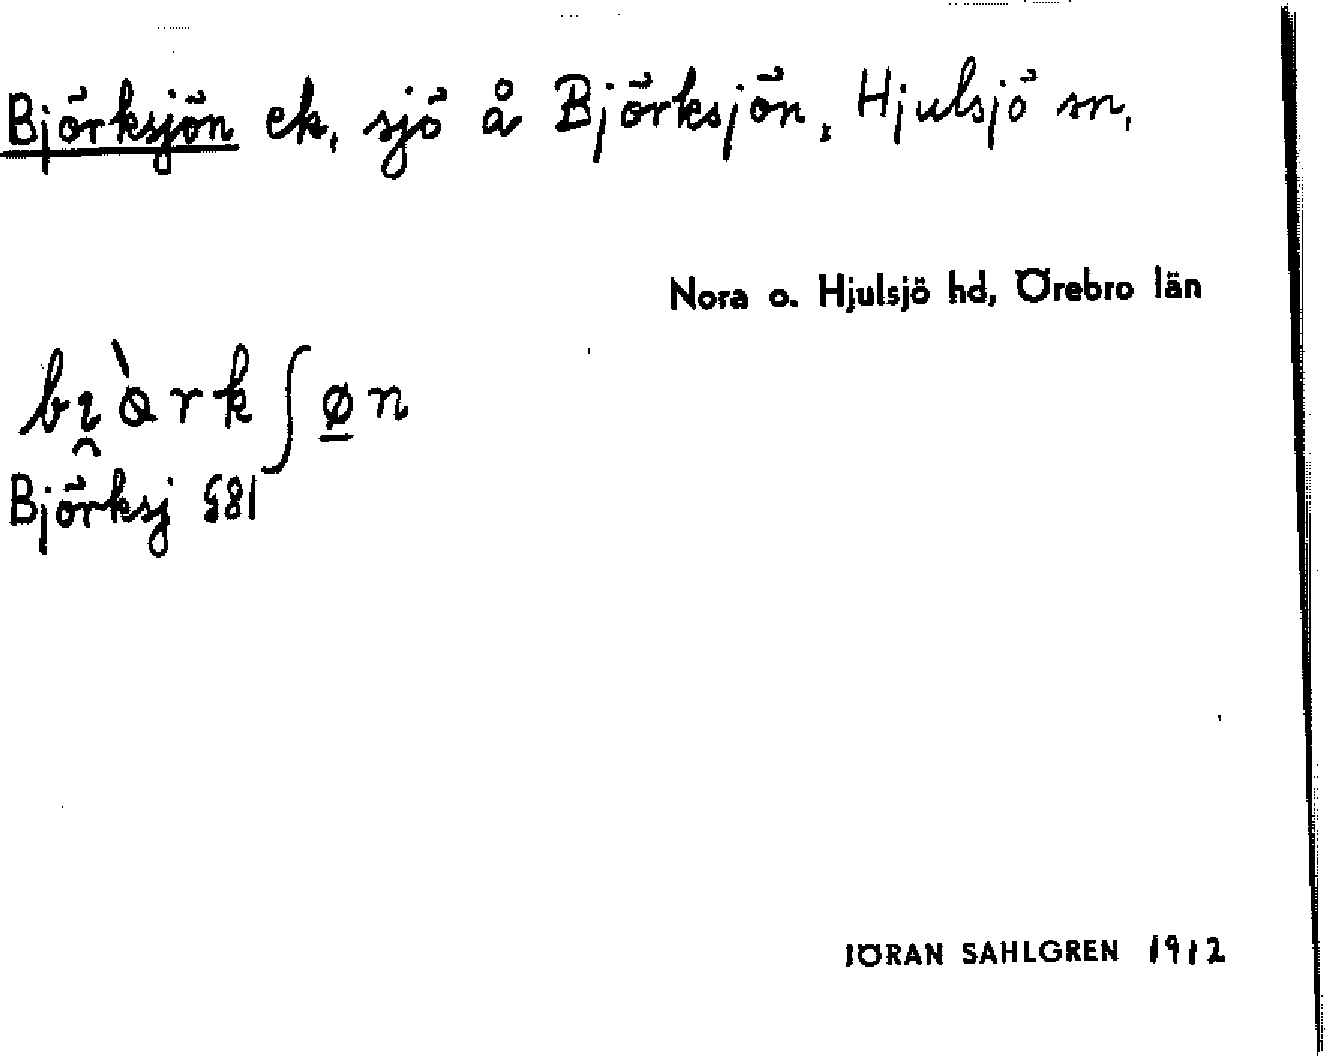 Björksjön ek, sjö å Björksjön, Hjulsjö sn,
Nora o. Hjulsjö hd, Örebro län
Björksj 581
JÖRAN SAHLGREN 1912